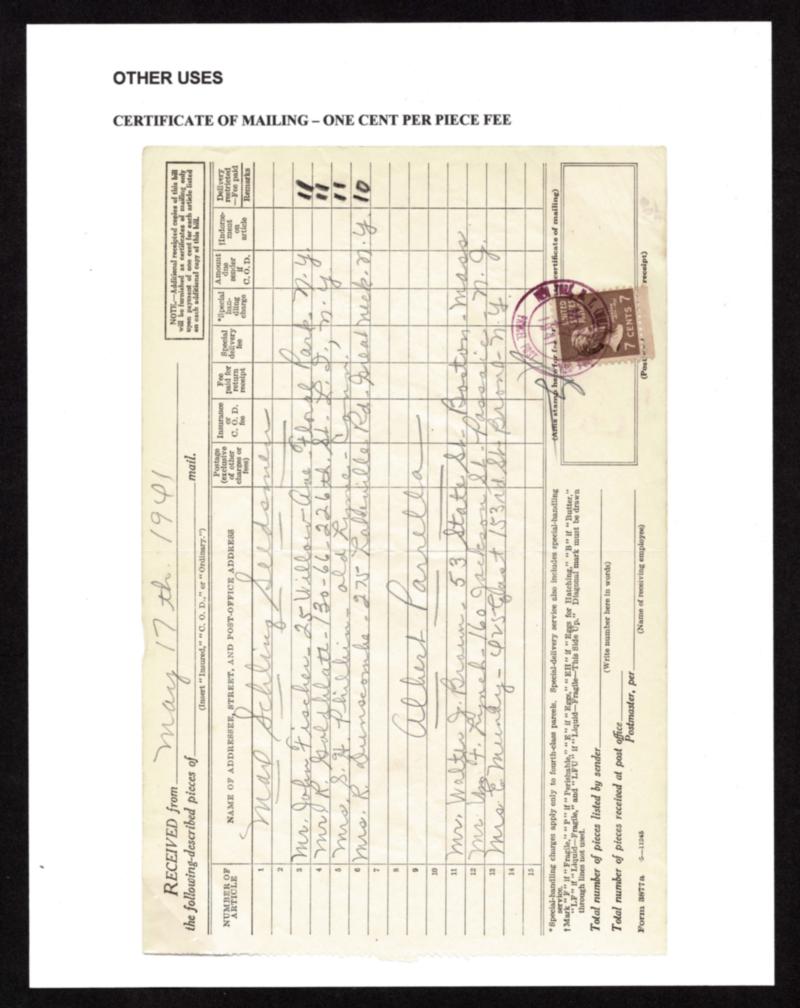 OTHER USES
CERTIFICATE OF MAILING – ONE CENT PER PIECE FEE
RECEIVED from May 17 th. 1941
the following-described pieces of mail.
(Insert "Insured," "C. O. D.," or "Ordinary.")
NOTE.—Additional receipted copies of this bill
will be furnished as certificates of mailing only
upon payment of one cent for each article listed
on each additional copy of this bill.
NUMBER OF ARTICLE
NAME OF ADDRESSEE, STREET, AND POST-OFFICE ADDRESS
Postage (exclusive of other charges or fees)
Insurance or C. O. D. fee
Fee paid for return receipt
Special delivery fee
*Special handling charge
Amount due sender if C. O. D.
†Indorsement on article
Delivery restricted—Fee paid
Remarks
1 Max Schling Seedsmen
2
3 Mr. John Fischer - 25 Willow Ave Floral Park. N.Y. 11
4 Mr. R. Goldblatt - 130-66-226th St. L. I., N.Y 11
5 Mrs. S. H. Philbin - old Lyme - Conn. 11
6 Mrs. R. Dunscombe 275 Lakeville Rd. Great Neck N.Y. 10
7
8
9 Albert Parrella
10
11 Mr. Walter J. Brown - 53 State St. Boston - Mass
12 Mr. Wm F. Lynch - 160 Jackson St. - Passaic, N. J.
13 Mrs E Mundy - 425 East 153rd St Bronx N.Y.
14
15
*Special-handling charges apply only to fourth-class parcels. Special-delivery service also includes special-handling
service.
†Mark "F" if "Fragile," "P" if "Perishable," "E" if "Eggs," "EH" if "Eggs for Hatching," "B" if "Butter,"
"LF" if "Liquid—Fragile," and "LFU" if "Liquid—Fragile—This Side Up." Diagonal mark must be drawn
through lines not used.
Total number of pieces listed by sender
(Write number here in words)
Total number of pieces received at post office
Postmaster, per
(Name of receiving employee)
Form 3877a
(Affix stamp here for fee certificate of mailing)
UNITED
7 CENTS 7
(Post receipt)